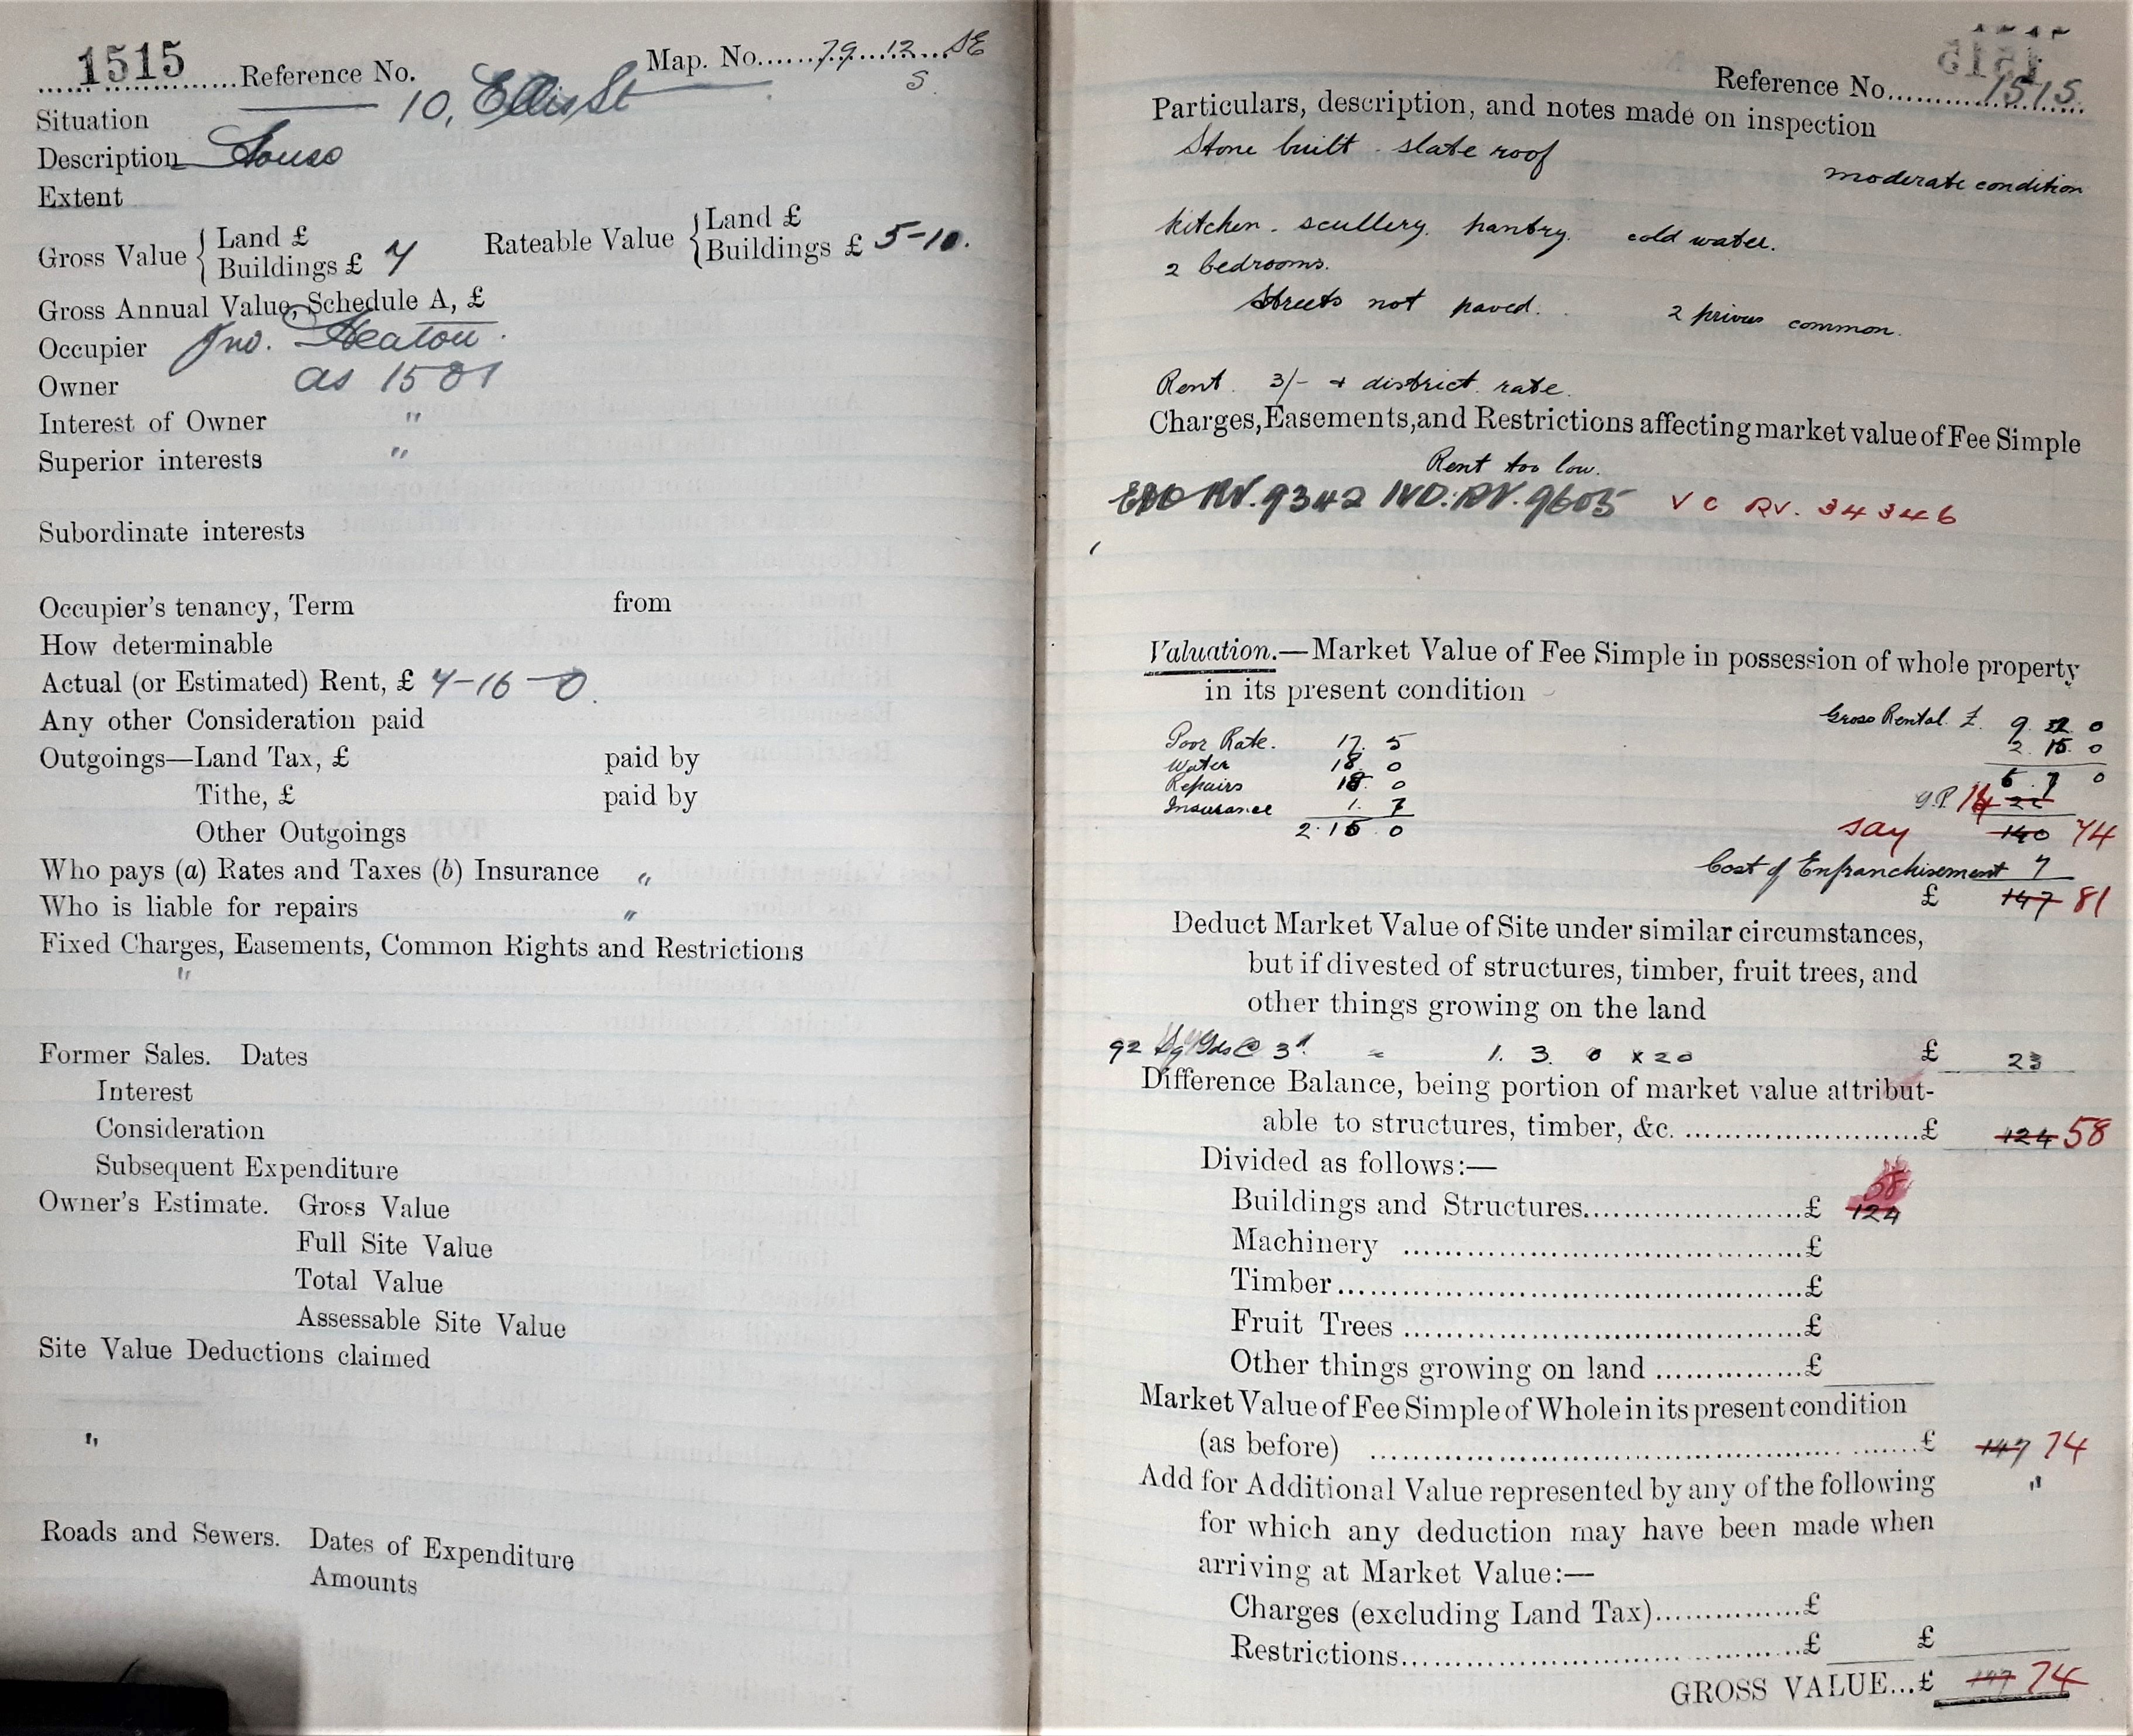 1515 Reference No. Map. No. 79 12 SE
S.
Situation 10, Ellis St
Description House
Extent
Gross Value { Land £
Buildings £ 7
Rateable Value { Land £
Buildings £ 5-10.
Gross Annual Value, Schedule A, £
Occupier Jno. Heaton.
Owner as 1501
Interest of Owner "
Superior interests "
Subordinate interests
Occupier's tenancy, Term from
How determinable
Actual (or Estimated) Rent, £ 7-16-0.
Any other Consideration paid
Outgoings—Land Tax, £ paid by
Tithe, £ paid by
Other Outgoings
Who pays (a) Rates and Taxes (b) Insurance "
Who is liable for repairs "
Fixed Charges, Easements, Common Rights and Restrictions
"
Former Sales. Dates
Interest
Consideration
Subsequent Expenditure
Owner's Estimate. Gross Value
Full Site Value
Total Value
Assessable Site Value
Site Value Deductions claimed
"
Roads and Sewers. Dates of Expenditure
Amounts
Reference No. 1515.
Particulars, description, and notes made on inspection
Stone built - slate roof
moderate condition
Kitchen. scullery. pantry. cold water.
2 bedrooms.
Streets not paved. 2 privies common.
Rent 3/- + district rate.
Charges, Easements, and Restrictions affecting market value of Fee Simple
Rent too low.
RV. 9342 IVD: RV. 9605 VC RV. 34346
Valuation.—Market Value of Fee Simple in possession of whole property
in its present condition
Gross Rental £ 9 0
Poor Rate. 17. 5 2. 15. 0
Water 18. 0
Repairs 18. 0 6. 7 0
Insurance 1. 7 Y.P. 14
2. 15. 0 say 140 74
Cost of Enfranchisement 7
£ 147 81
Deduct Market Value of Site under similar circumstances,
but if divested of structures, timber, fruit trees, and
other things growing on the land
92 Sq Yds @ 3d = 1. 3. 0 x 20 £ 23
Difference Balance, being portion of market value attribut-
able to structures, timber, &c. £ 124 58
Divided as follows:—
58
Buildings and Structures £ 124
Machinery £
Timber £
Fruit Trees £
Other things growing on land £
Market Value of Fee Simple of Whole in its present condition
(as before) £ 147 74
Add for Additional Value represented by any of the following "
for which any deduction may have been made when
arriving at Market Value:—
Charges (excluding Land Tax) £
Restrictions £ £
GROSS VALUE...£ 147 74